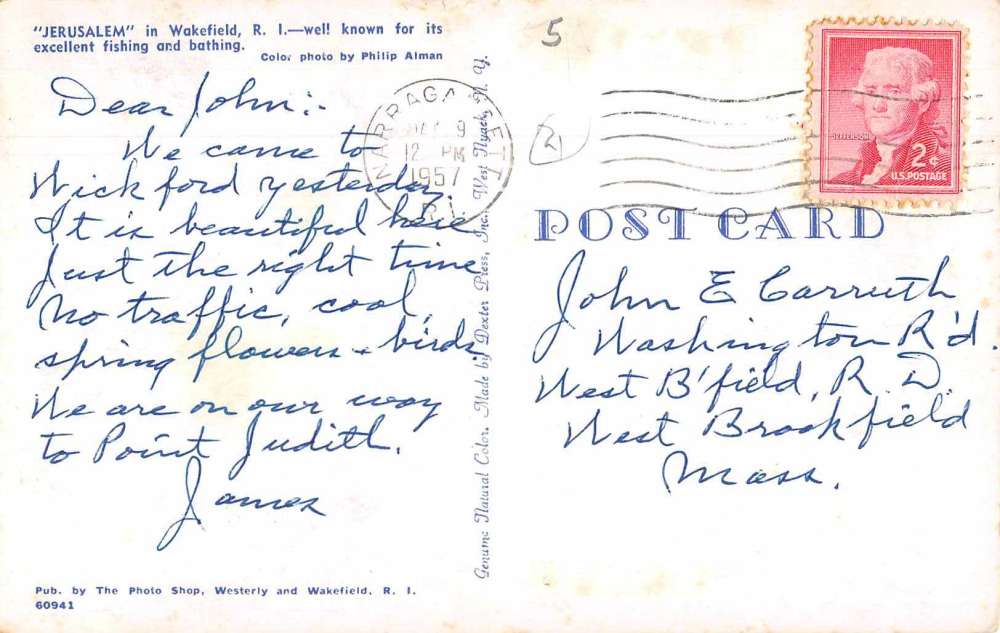 "JERUSALEM" in Wakefield, R. I.—well known for its
excellent fishing and bathing.
Color photo by Philip Alman
Dear John:-
We came to
Wickford yesterday.
It is beautiful here
Just the right time
No traffic, cool,
spring flowers + birds.
We are on our way
to Point Judith.
James
Pub. by The Photo Shop, Westerly and Wakefield, R. I.
60941
Genuine Natural Color. Made by Dexter Press, Inc., West Nyack, N. Y.
5
2
NARRAGANSETT
9
12 PM
1957
R.I.
JEFFERSON
2¢
U.S. POSTAGE
POST CARD
John E Carruth
Washington R'd.
West B'field, R. D.
West Brookfield
Mass.